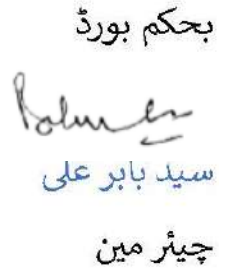 بحکم بورڈ
سید بابر علی
چیئر مین